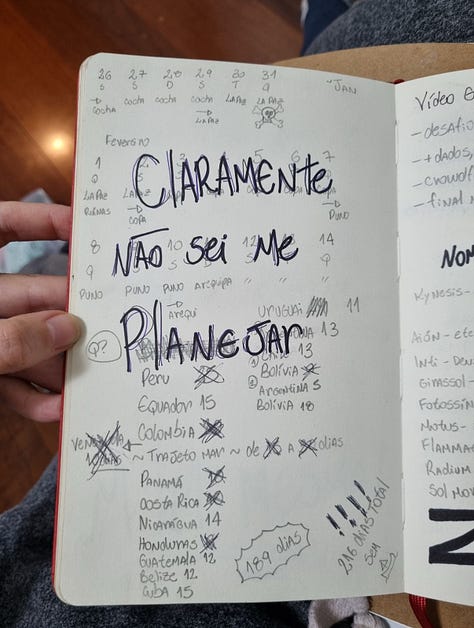 26 27 28 29 30 31
S S D S T Q "JAN
→ COCHA COCHA COCHA COCHA LAPAZ LAPAZ
COCHA → LAPAZ
Fevereiro
1 5 6 7
CLARAMENTE
Q
LAPAZ LAPAZ
RUÍNAS → COPA → PUNO
8 10 12 14
NÃO SEI ME
Q S D Q
PUNO PUNO PUNO AREQUIPA " " "
→ AREQUI
URUGUAI 11
PLANEJAR
Q? 13
CHILE 13
PERU BOLÍVIA
ARGENTINA 5
EQUADOR 15 BOLÍVIA 18
COLOMBIA
VENEZUELA ← ~ TRAJETO MAR ~ DE A DIAS
PANAMÁ
COSTA RICA
NICARÁGUA 14
HONDURAS
GUATEMALA 12
BELIZE 12
CUBA 15
189 DIAS
!!!!
216 DIAS TOTAL
SEM
VÍDEO
- DESAFIO
- + DADOS,
- CROWDF
- FINAL
NOM
KYNESIS-
AIÓN - ETE
INTI - DEU
GIRASSOL
FOTOSSÍN
MOTUS -
FLAMMA
RADIUM
SOL MOV
N